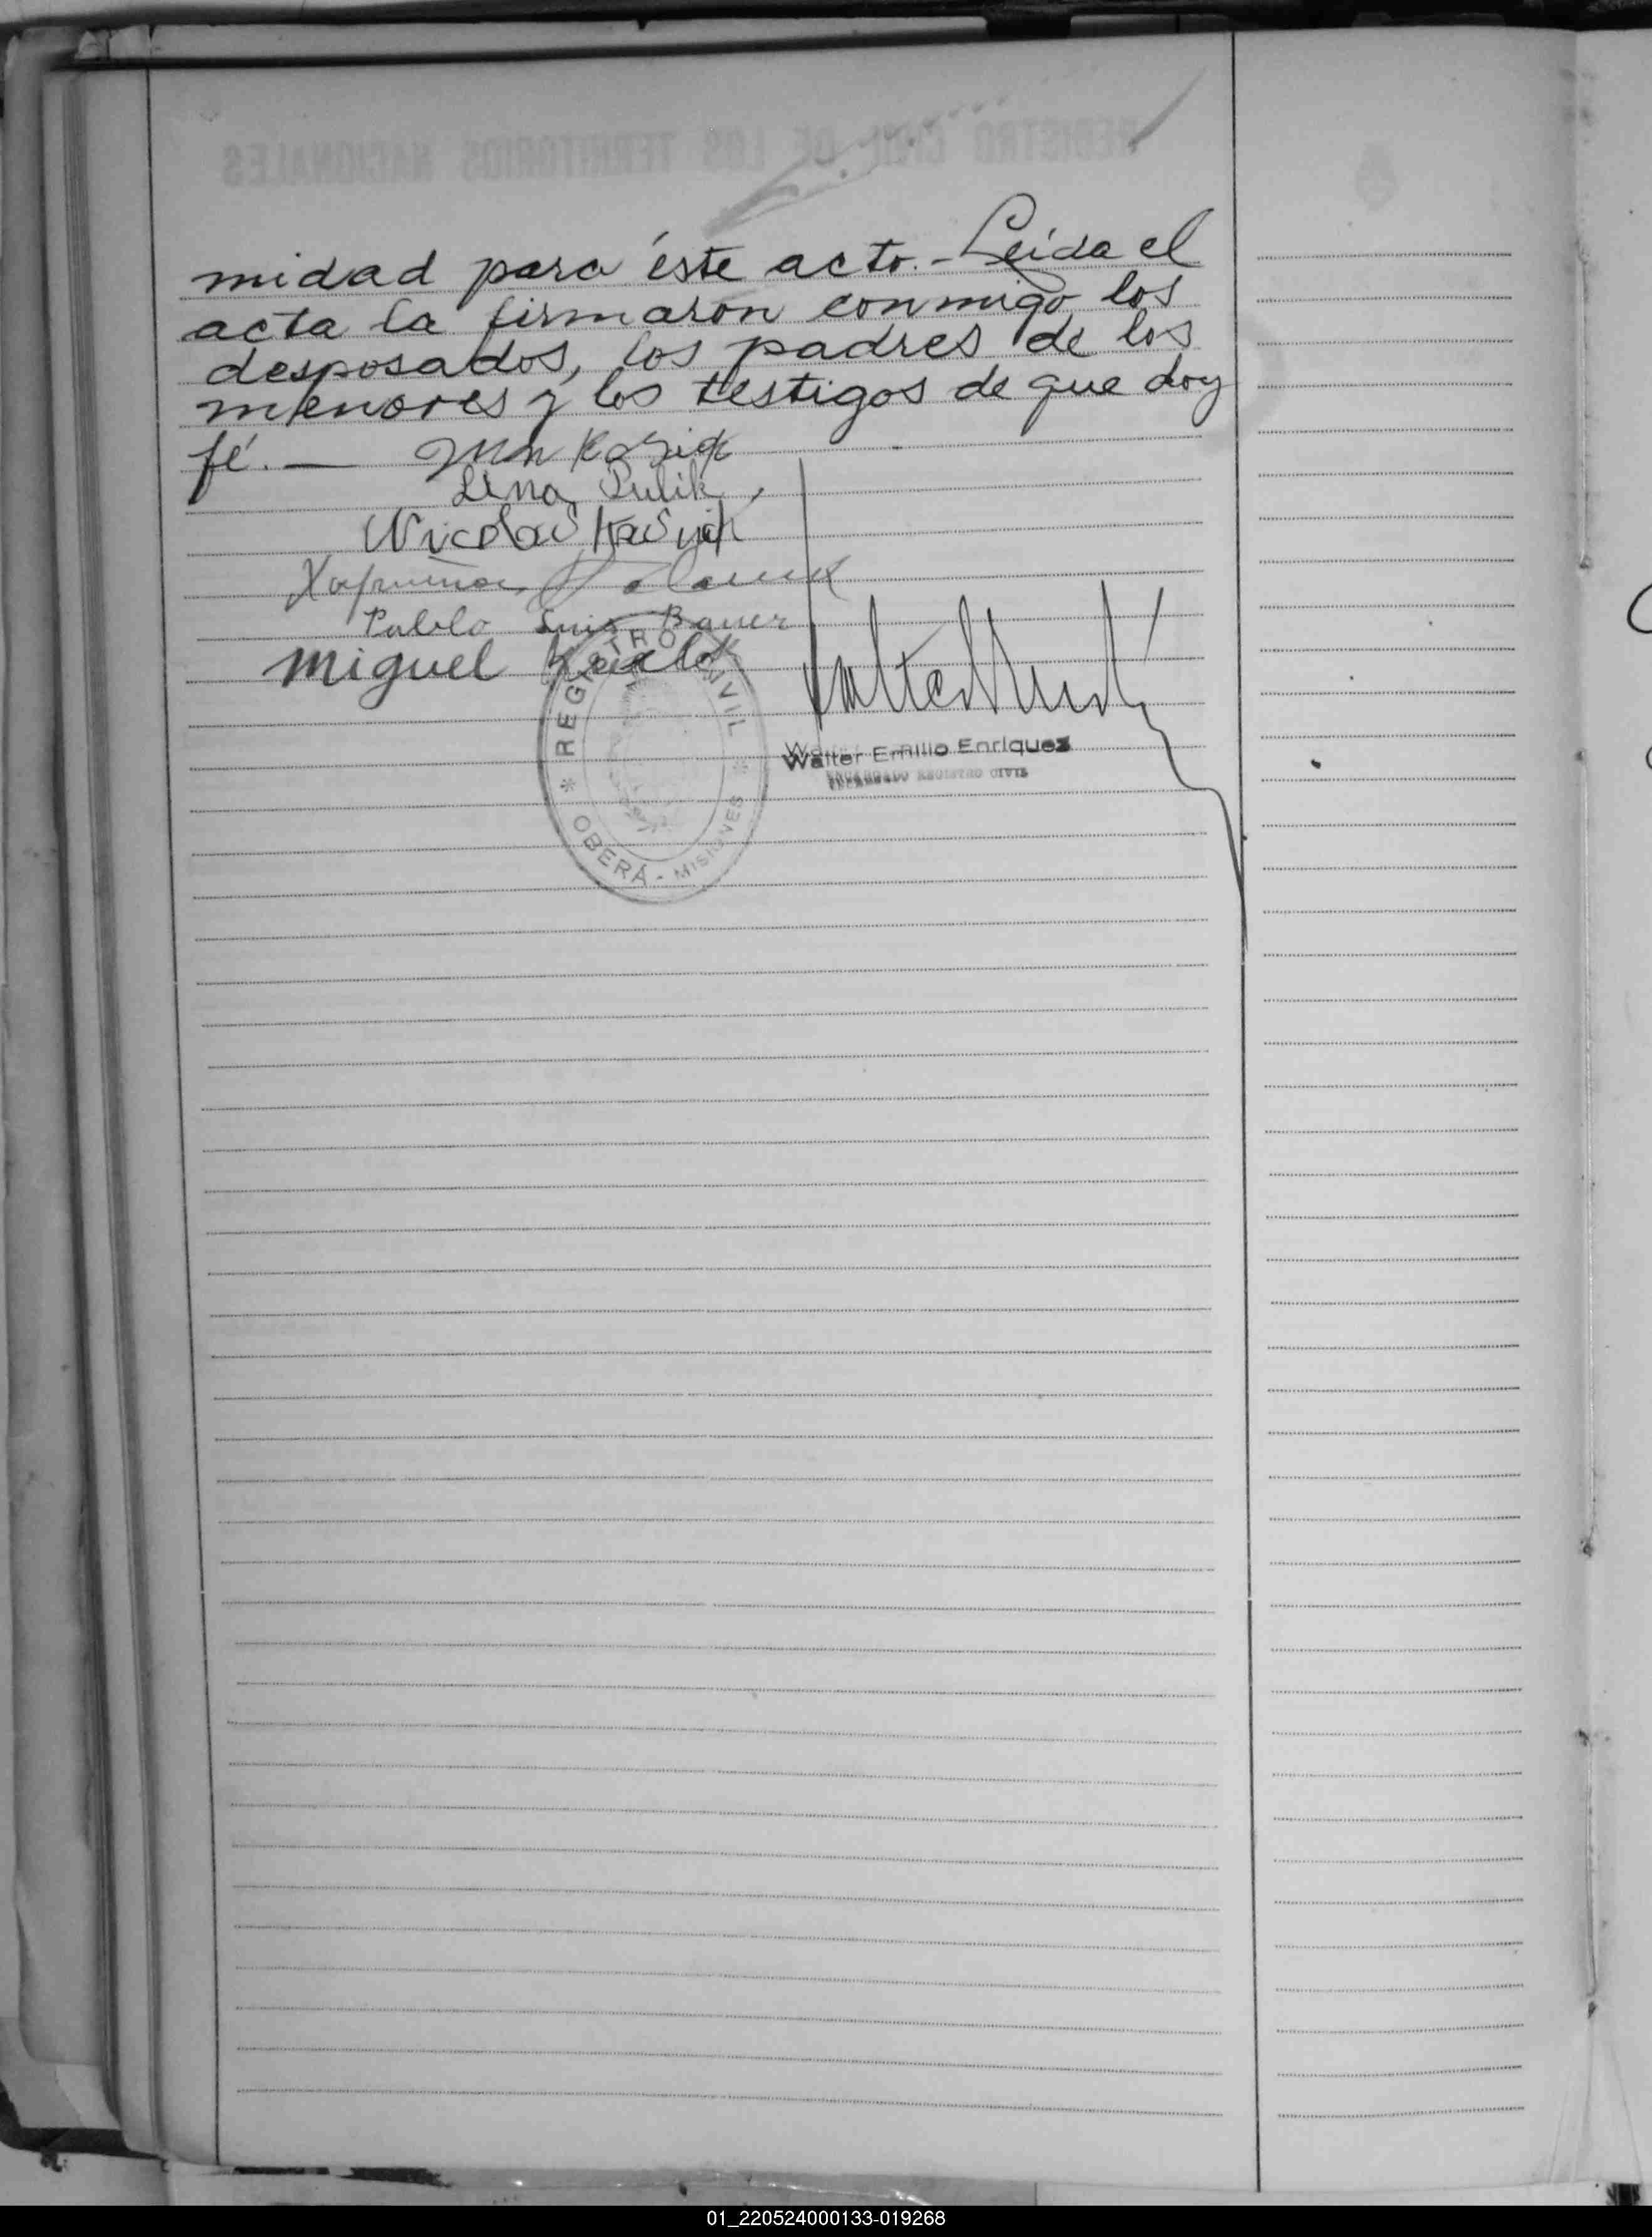 REGISTRO CIVIL DE LOS TERRITORIOS NACIONALES
midad para éste acto.- Leída el
acta la firmaron conmigo los
desposados, los padres de los
menores y los testigos de que doy
fé. —
Lina Pulik
Nicolas
Pablo Luis Bauer
Miguel
REGISTRO CIVIL
* OBERÁ - MISIONES *
Walter Emilio Enriquez
ENCARGADO REGISTRO CIVIL
01_220524000133-019268